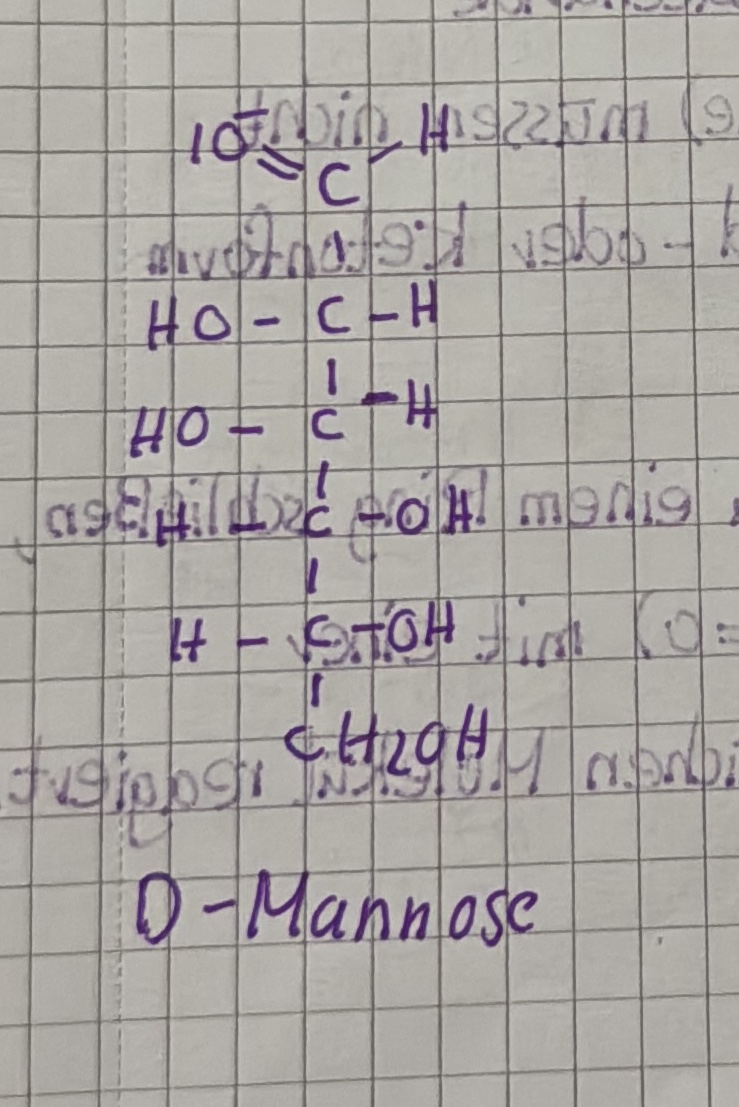 IO = C - H
HO - C - H
HO - C - H
H - C - OH
H - C - OH
CH2OH
D-Mannose